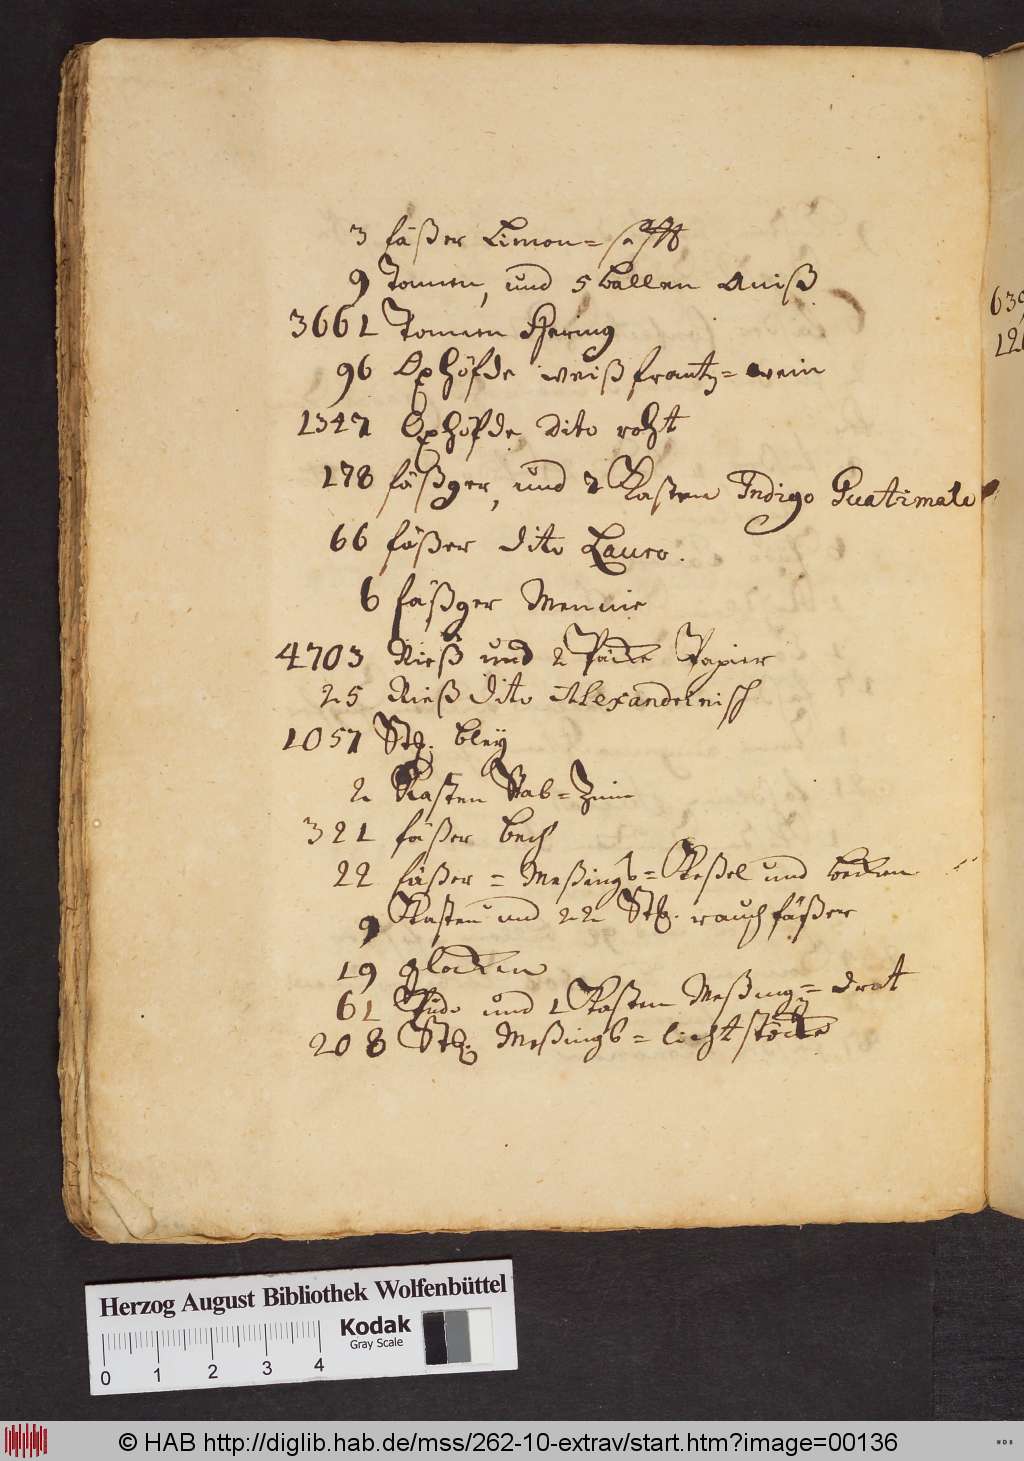 3 fäßer Limon=safft
9 Tonnen, und 5 ballen Aniß
3661 Tonnen Hering
96 Oxhöfde weiß frantz=wein
1347 Oxhöfde dito roht
178 fäßger, und 2 Kasten Indigo Guatimalo
66 fäßer dito Lauro.
6 fäßger Mennie
4703 Rieß und 2 Päcke Papier
25 Rieß dito Alexandrinisch
1057 Stk. bley
2 Kasten Stab=Zinn
321 fäßer bech
22 fäßer = Meßings=Keßel und becken
9 Kasten und 22 Stk. rauchfäßer
19 glocken
61 und 1 Kasten Meßing=drat
208 Stk. Meßings=lichtstöcke
639
Herzog August Bibliothek Wolfenbüttel
Kodak
Gray Scale
0 1 2 3 4
© HAB http://diglib.hab.de/mss/262-10-extrav/start.htm?image=00136